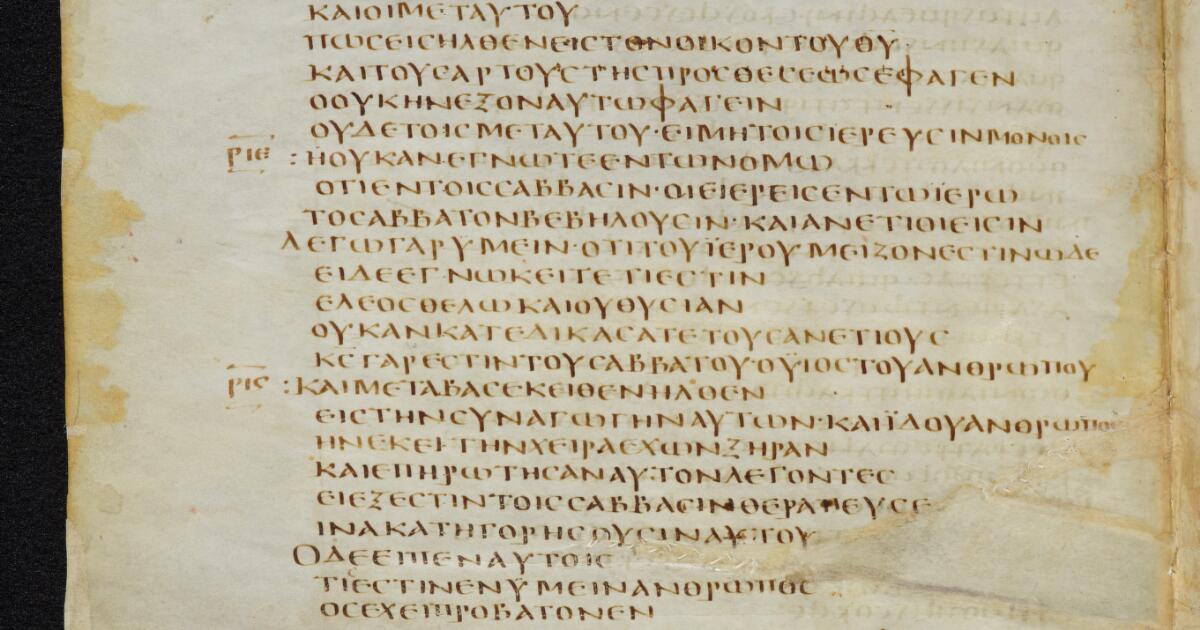 ΚΑΙΟΙΜΕΤΑΥΤΟΥ
ΠΩΣΕΙΣΗΛΘΕΝΕΙΣΤΟΝΟΙΚΟΝΤΟΥΘΥ·
ΚΑΙΤΟΥΣΑΡΤΟΥΣΤΗΣΠΡΟΣΘΕΣΕΩΣΕΦΑΓΕΝ
ΟΟΥΚΗΝΕΞΟΝΑΥΤΩΦΑΓΕΙΝ
ΟΥΔΕΤΟΙΣΜΕΤΑΥΤΟΥ·ΕΙΜΗΤΟΙΣΙΕΡΕΥΣΙΝΜΟΝΟΙΣ
ΡΙΕ :ΗΟΥΚΑΝΕΓΝΩΤΕΕΝΤΩΝΟΜΩ
ΟΤΙΕΝΤΟΙΣΣΑΒΒΑΣΙΝ·ΟΙΕΙΕΡΕΙΣΕΝΤΩΪΕΡΩ
ΤΟΣΑΒΒΑΤΟΝΒΕΒΗΛΟΥΣΙΝ·ΚΑΙΑΝΕΤΙΟΙΕΙΣΙΝ
ΛΕΓΩΓΑΡΫΜΕΙΝ·ΟΤΙΤΟΥΪΕΡΟΥΜΕΙΖΟΝΕΣΤΙΝΩΔΕ
ΕΙΔΕΕΓΝΩΚΕΙΤΕΤΙΕΣΤΙΝ
ΕΛΕΟΣΘΕΛΩΚΑΙΟΥΘΥΣΙΑΝ
ΟΥΚΑΝΚΑΤΕΔΙΚΑΣΑΤΕΤΟΥΣΑΝΕΤΙΟΥΣ
ΚΣΓΑΡΕΣΤΙΝΤΟΥΣΑΒΒΑΤΟΥ·ΟΫΙΟΣΤΟΥΑΝΘΡΩΠΟΥ
ΡΙϚ :ΚΑΙΜΕΤΑΒΑΣΕΚΕΙΘΕΝΗΛΘΕΝ
ΕΙΣΤΗΝΣΥΝΑΓΩΓΗΝΑΥΤΩΝ·ΚΑΙΪΔΟΥΑΝΘΡΩΠΟΣ
ΗΝΕΚΕΙΤΗΝΧΕΙΡΑΕΧΩΝΞΗΡΑΝ
ΚΑΙΕΠΗΡΩΤΗΣΑΝΑΥΤΟΝΛΕΓΟΝΤΕΣ
ΕΙΕΞΕΣΤΙΝΤΟΙΣΣΑΒΒΑΣΙΝΘΕΡΑΠΕΥΣΕ
ΙΝΑΚΑΤΗΓΟΡΗΣΟΥΣΙΝΑΥΤΟΥ
ΟΔΕΕΙΠΕΝΑΥΤΟΙΣ
ΤΙΕΣΤΙΝΕΝΫΜΕΙΝΑΝΘΡΩΠΟΣ
ΟΣΕΧΕΙΠΡΟΒΑΤΟΝΕΝ